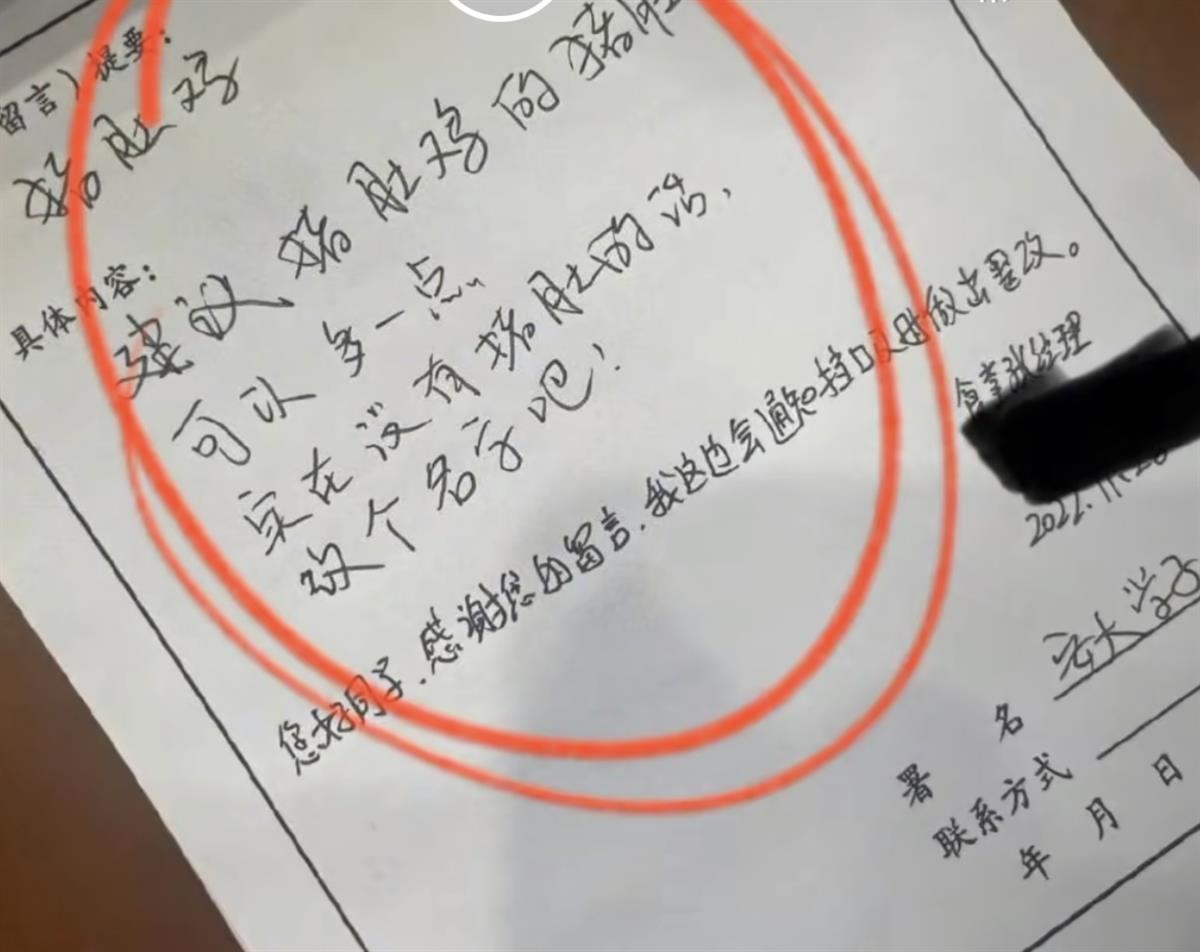 留言）提要：
猪肚鸡
具体内容：
建议猪肚鸡的猪肚
可以多一点
实在没有猪肚的话，
改个名字吧！
您好同学，感谢您的留言，我这边会通知档口及时做出整改。
食堂张经理
2022.11.28
署名
安大学子
联系方式
年 月 日